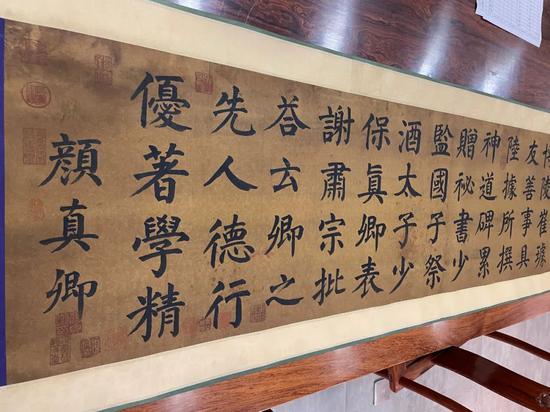 陵崔
友善事具
陸據所撰
神道碑累
贈祕書少
監國子祭
酒太子少
保真卿表
謝肅宗批
荅云卿之
先人德行
優著學精
顏真卿